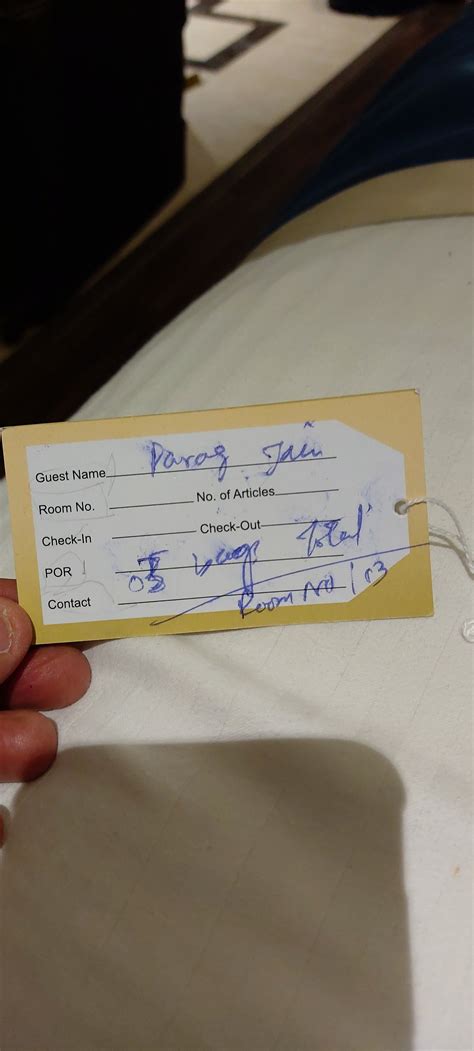 Guest Name Parag Jain
Room No. No. of Articles
Check-In Check-Out
POR 03 bags Total
Contact Room No 103